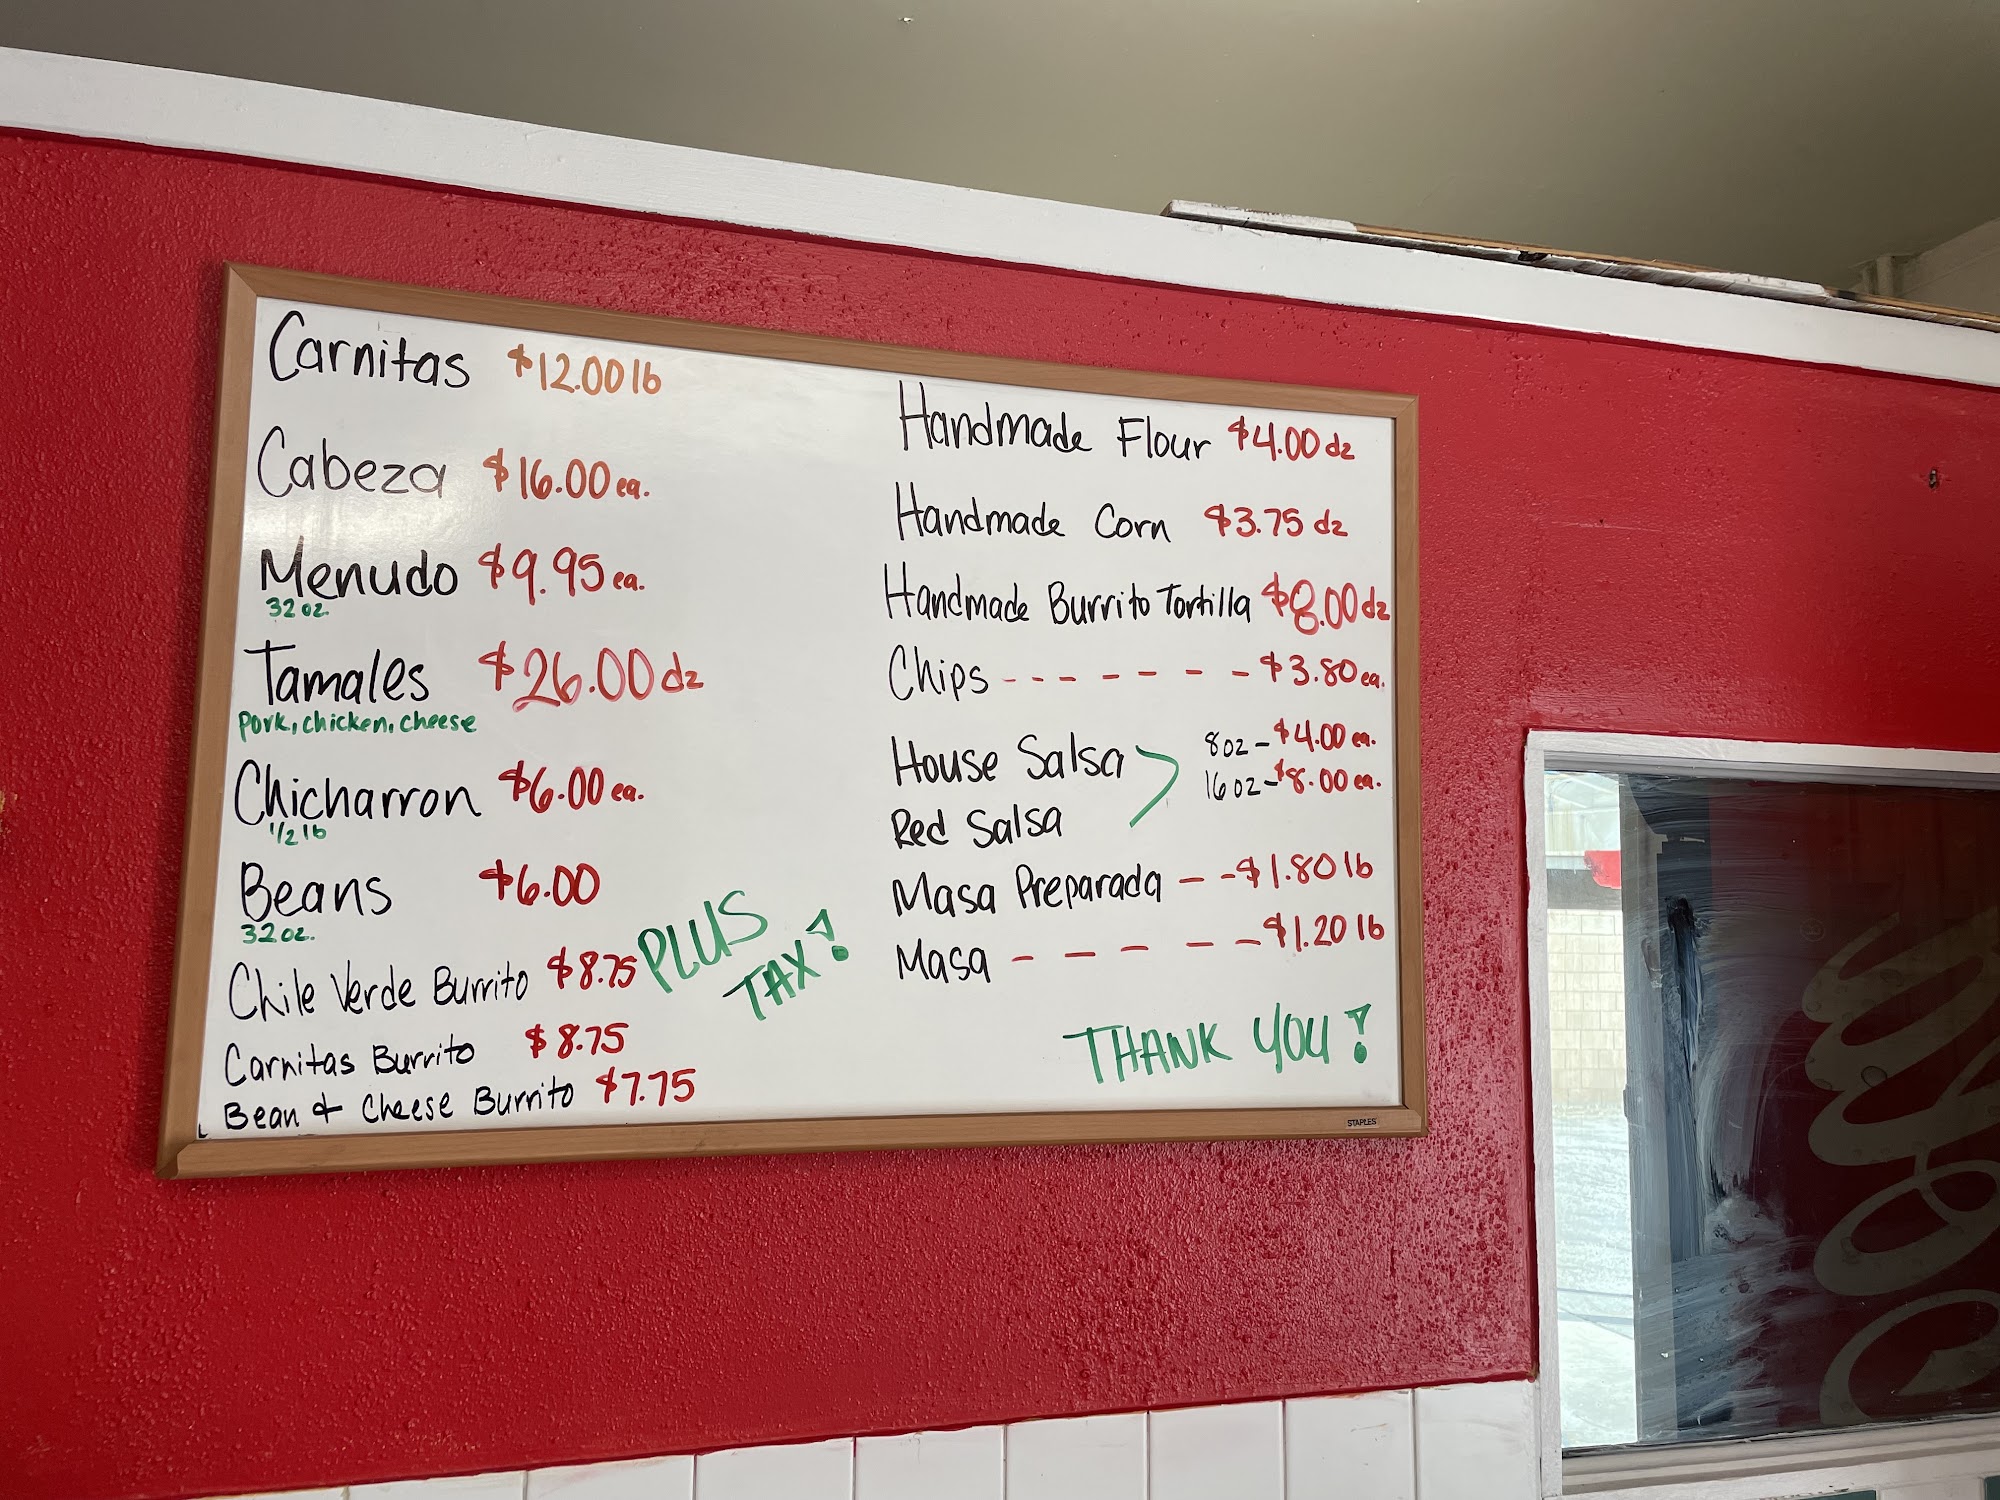 Carnitas $12.00 lb
Cabeza $16.00 ea.
Menudo $9.95 ea.
32 oz.
Tamales $26.00 dz
Pork, chicken, cheese
Chicharron $6.00 ea.
1/2 lb
Beans $6.00
32 oz.
Chile Verde Burrito $8.75
Carnitas Burrito $8.75
Bean & Cheese Burrito $7.75
PLUS
TAX!
Handmade Flour $4.00 dz
Handmade Corn $3.75 dz
Handmade Burrito Tortilla $8.00 dz
Chips - - - - - - - $3.80 ea.
House Salsa > 8 oz - $4.00 ea.
16 oz - $8.00 ea.
Red Salsa
Masa Preparada - - $1.80 lb
Masa - - - - - $1.20 lb
THANK YOU!
STAPLES